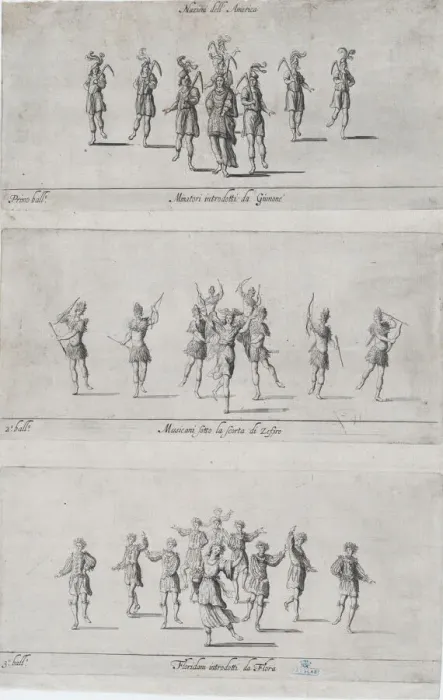 Nazioni dell'America
Primo ball.º
Minatori introdotti da Giunone
2.º ball.º
Messicani sotto la scorta di Zefiro
3.º ball.º
Floridani introdotti da Flora